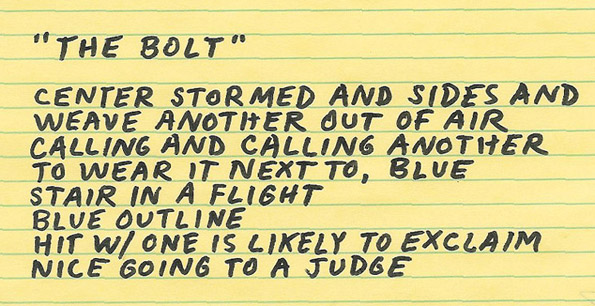 "THE BOLT"
CENTER STORMED AND SIDES AND
WEAVE ANOTHER OUT OF AIR
CALLING AND CALLING ANOTHER
TO WEAR IT NEXT TO, BLUE
STAIR IN A FLIGHT
BLUE OUTLINE
HIT W/ ONE IS LIKELY TO EXCLAIM
NICE GOING TO A JUDGE